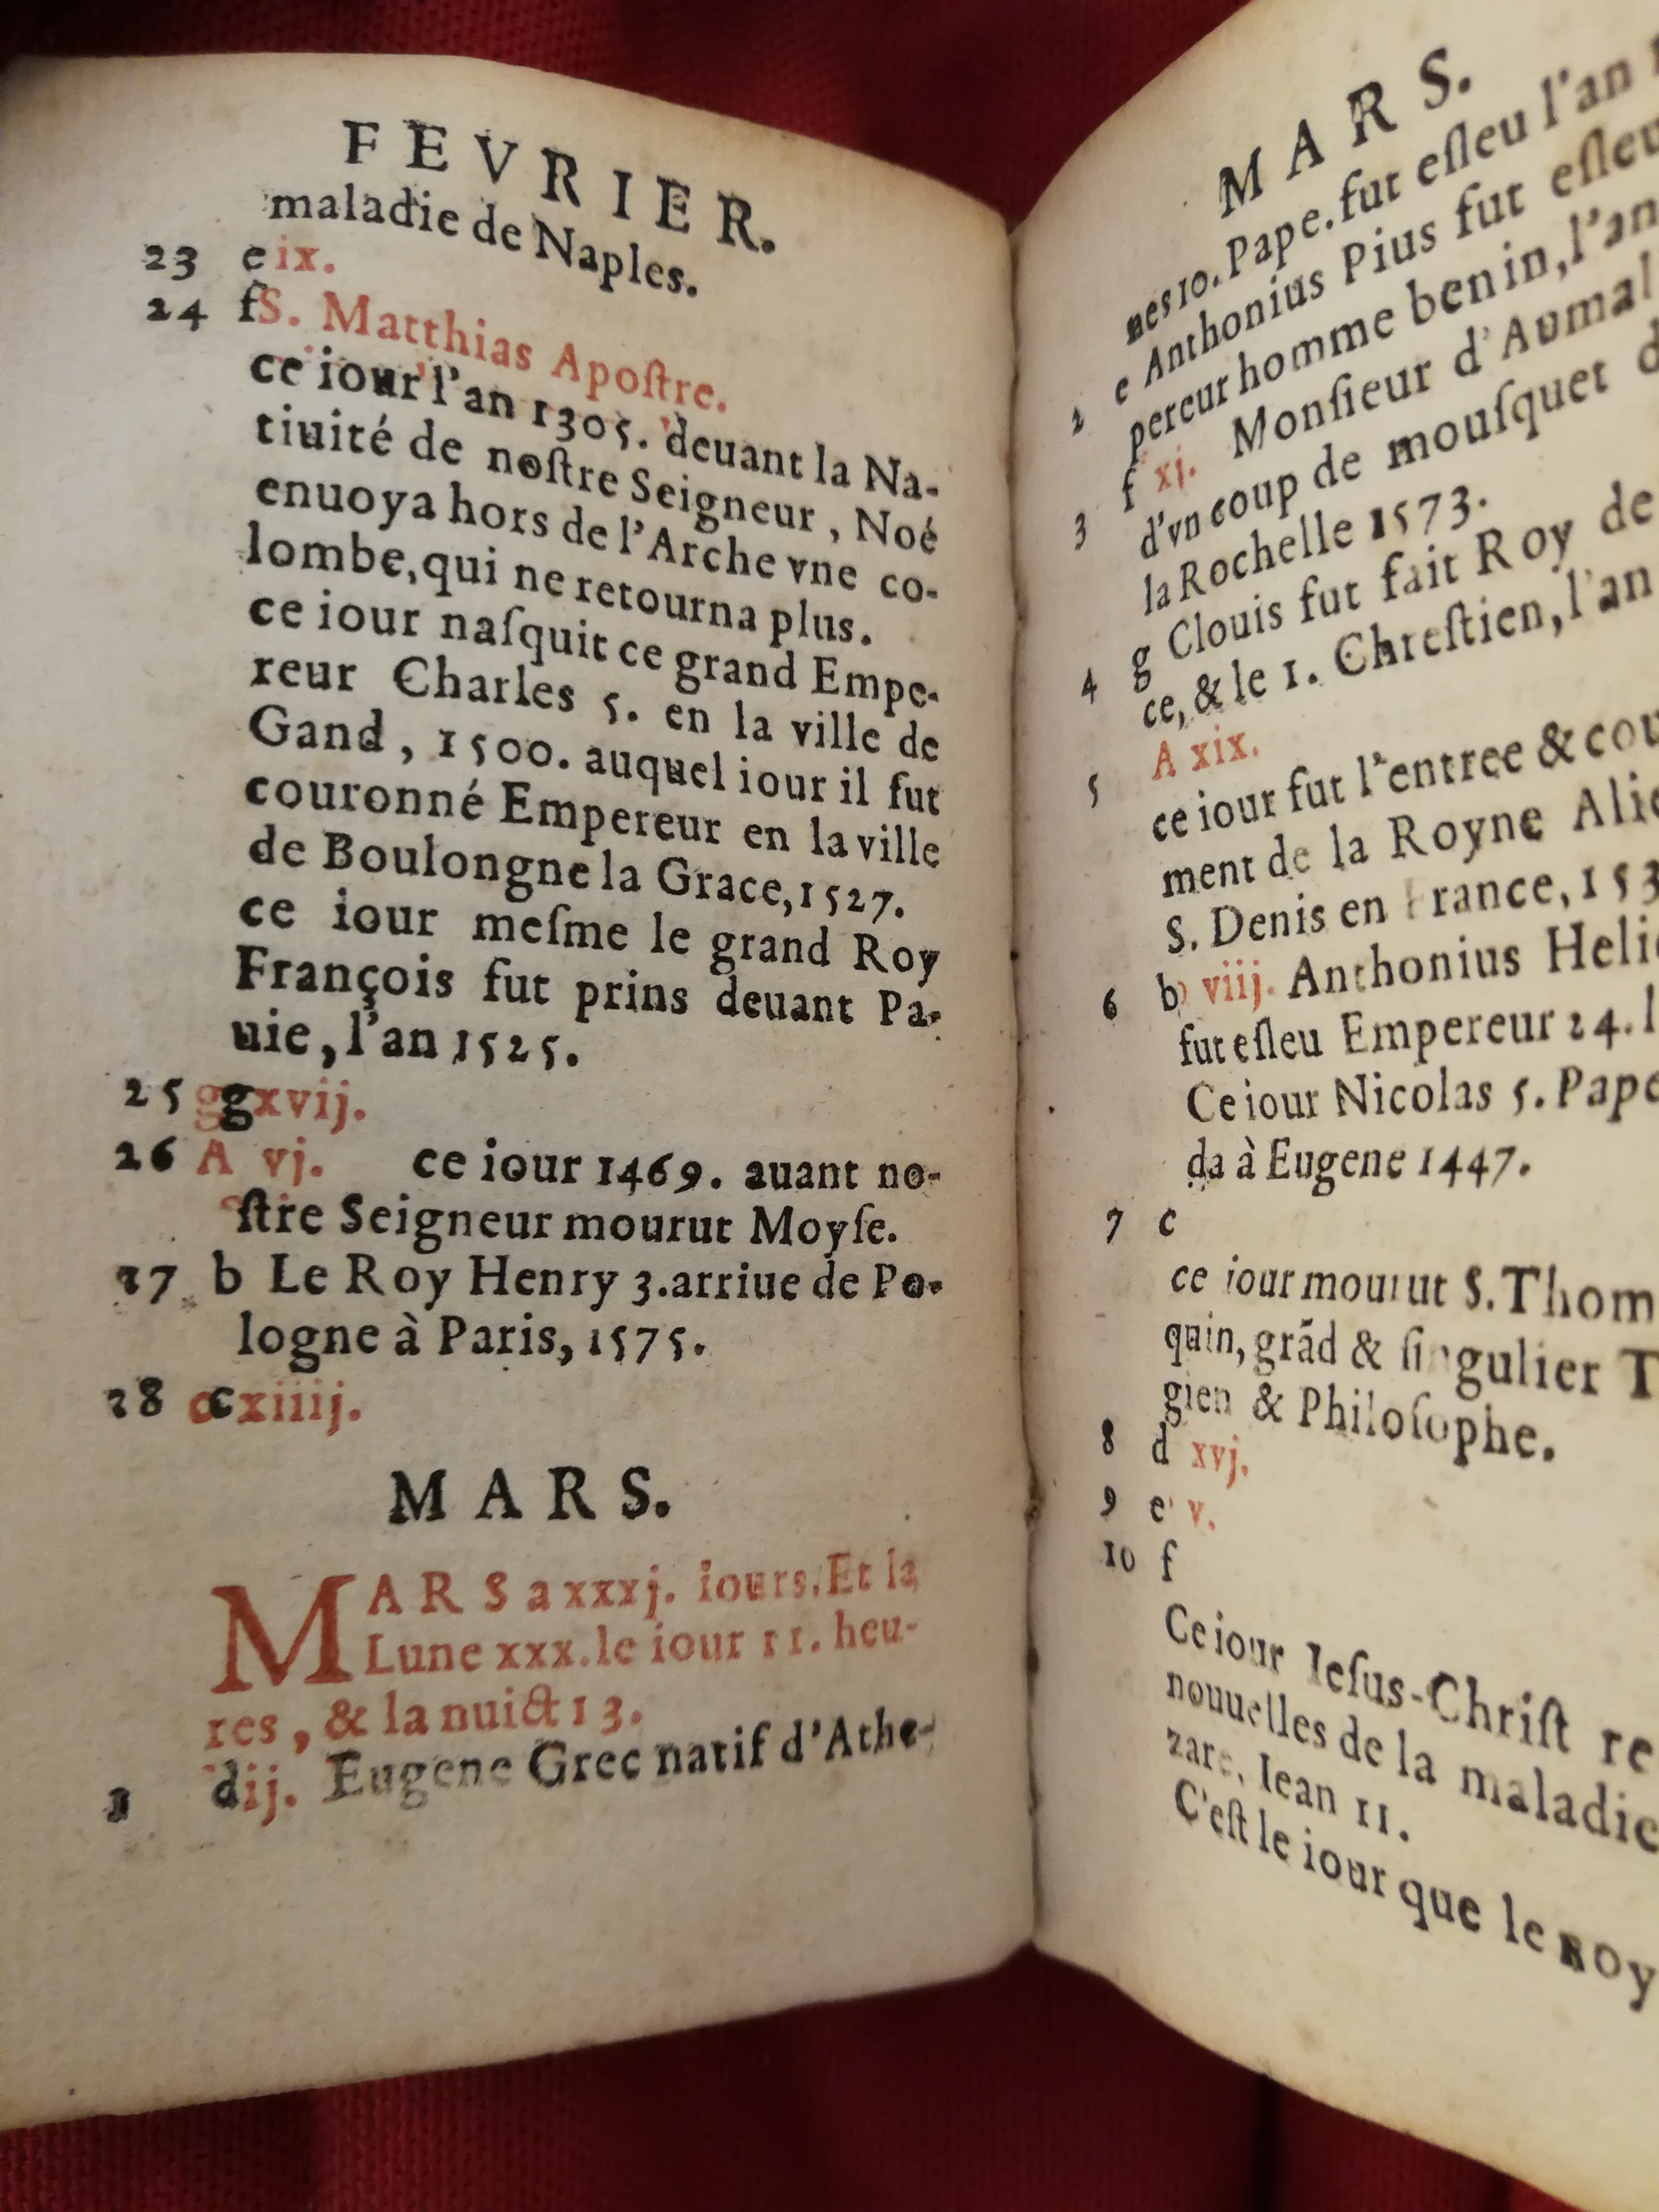 FEVRIER.
maladie de Naples.
23 e ix.
24 f S. Matthias Apoſtre.
ce iour l'an 1305. deuant la Na-
tiuité de noſtre Seigneur, Noé
enuoya hors de l'Arche vne co-
lombe, qui ne retourna plus.
ce iour naſquit ce grand Empe-
reur Charles 5. en la ville de
Gand, 1500. auquel iour il fut
couronné Empereur en la ville
de Boulongne la Grace, 1527.
ce iour meſme le grand Roy
François fut prins deuant Pa-
uie, l'an 1525.
25 g xvij.
26 A vj. ce iour 1469. auant no-
ſtre Seigneur mourut Moyſe.
27 b Le Roy Henry 3. arriue de Po-
logne à Paris, 1575.
28 c xiiij.
MARS.
MARS a xxxj. iours. Et la
Lune xxx. le iour 11. heu-
res, & la nuict 13.
d ij. Eugene Grec natif d'Athe-
MARS.
nes 10. Pape. fut eſleu l'an
2 e Anthonius Pius fut eſleu
pereur homme benin, l'an
3 f xj. Monſieur d'Aumal
d'vn coup de mouſquet d
la Rochelle 1573.
4 g Clouis fut fait Roy de
ce, & le 1. Chreſtien, l'an
5 A xix.
ce iour fut l'entree & cou
ment de la Royne Alie
S. Denis en France, 153
6 b viij. Anthonius Helio
fut eſleu Empereur 24. l
Ce iour Nicolas 5. Pape
da à Eugene 1447.
7 c
ce iour mourut S. Thom
quin, grād & ſingulier T
gien & Philoſophe.
8 d xvj.
9 e v.
10 f
Ce iour Ieſus-Chriſt re
nouuelles de la maladie
zare, Iean 11.
C'eſt le iour que le Roy